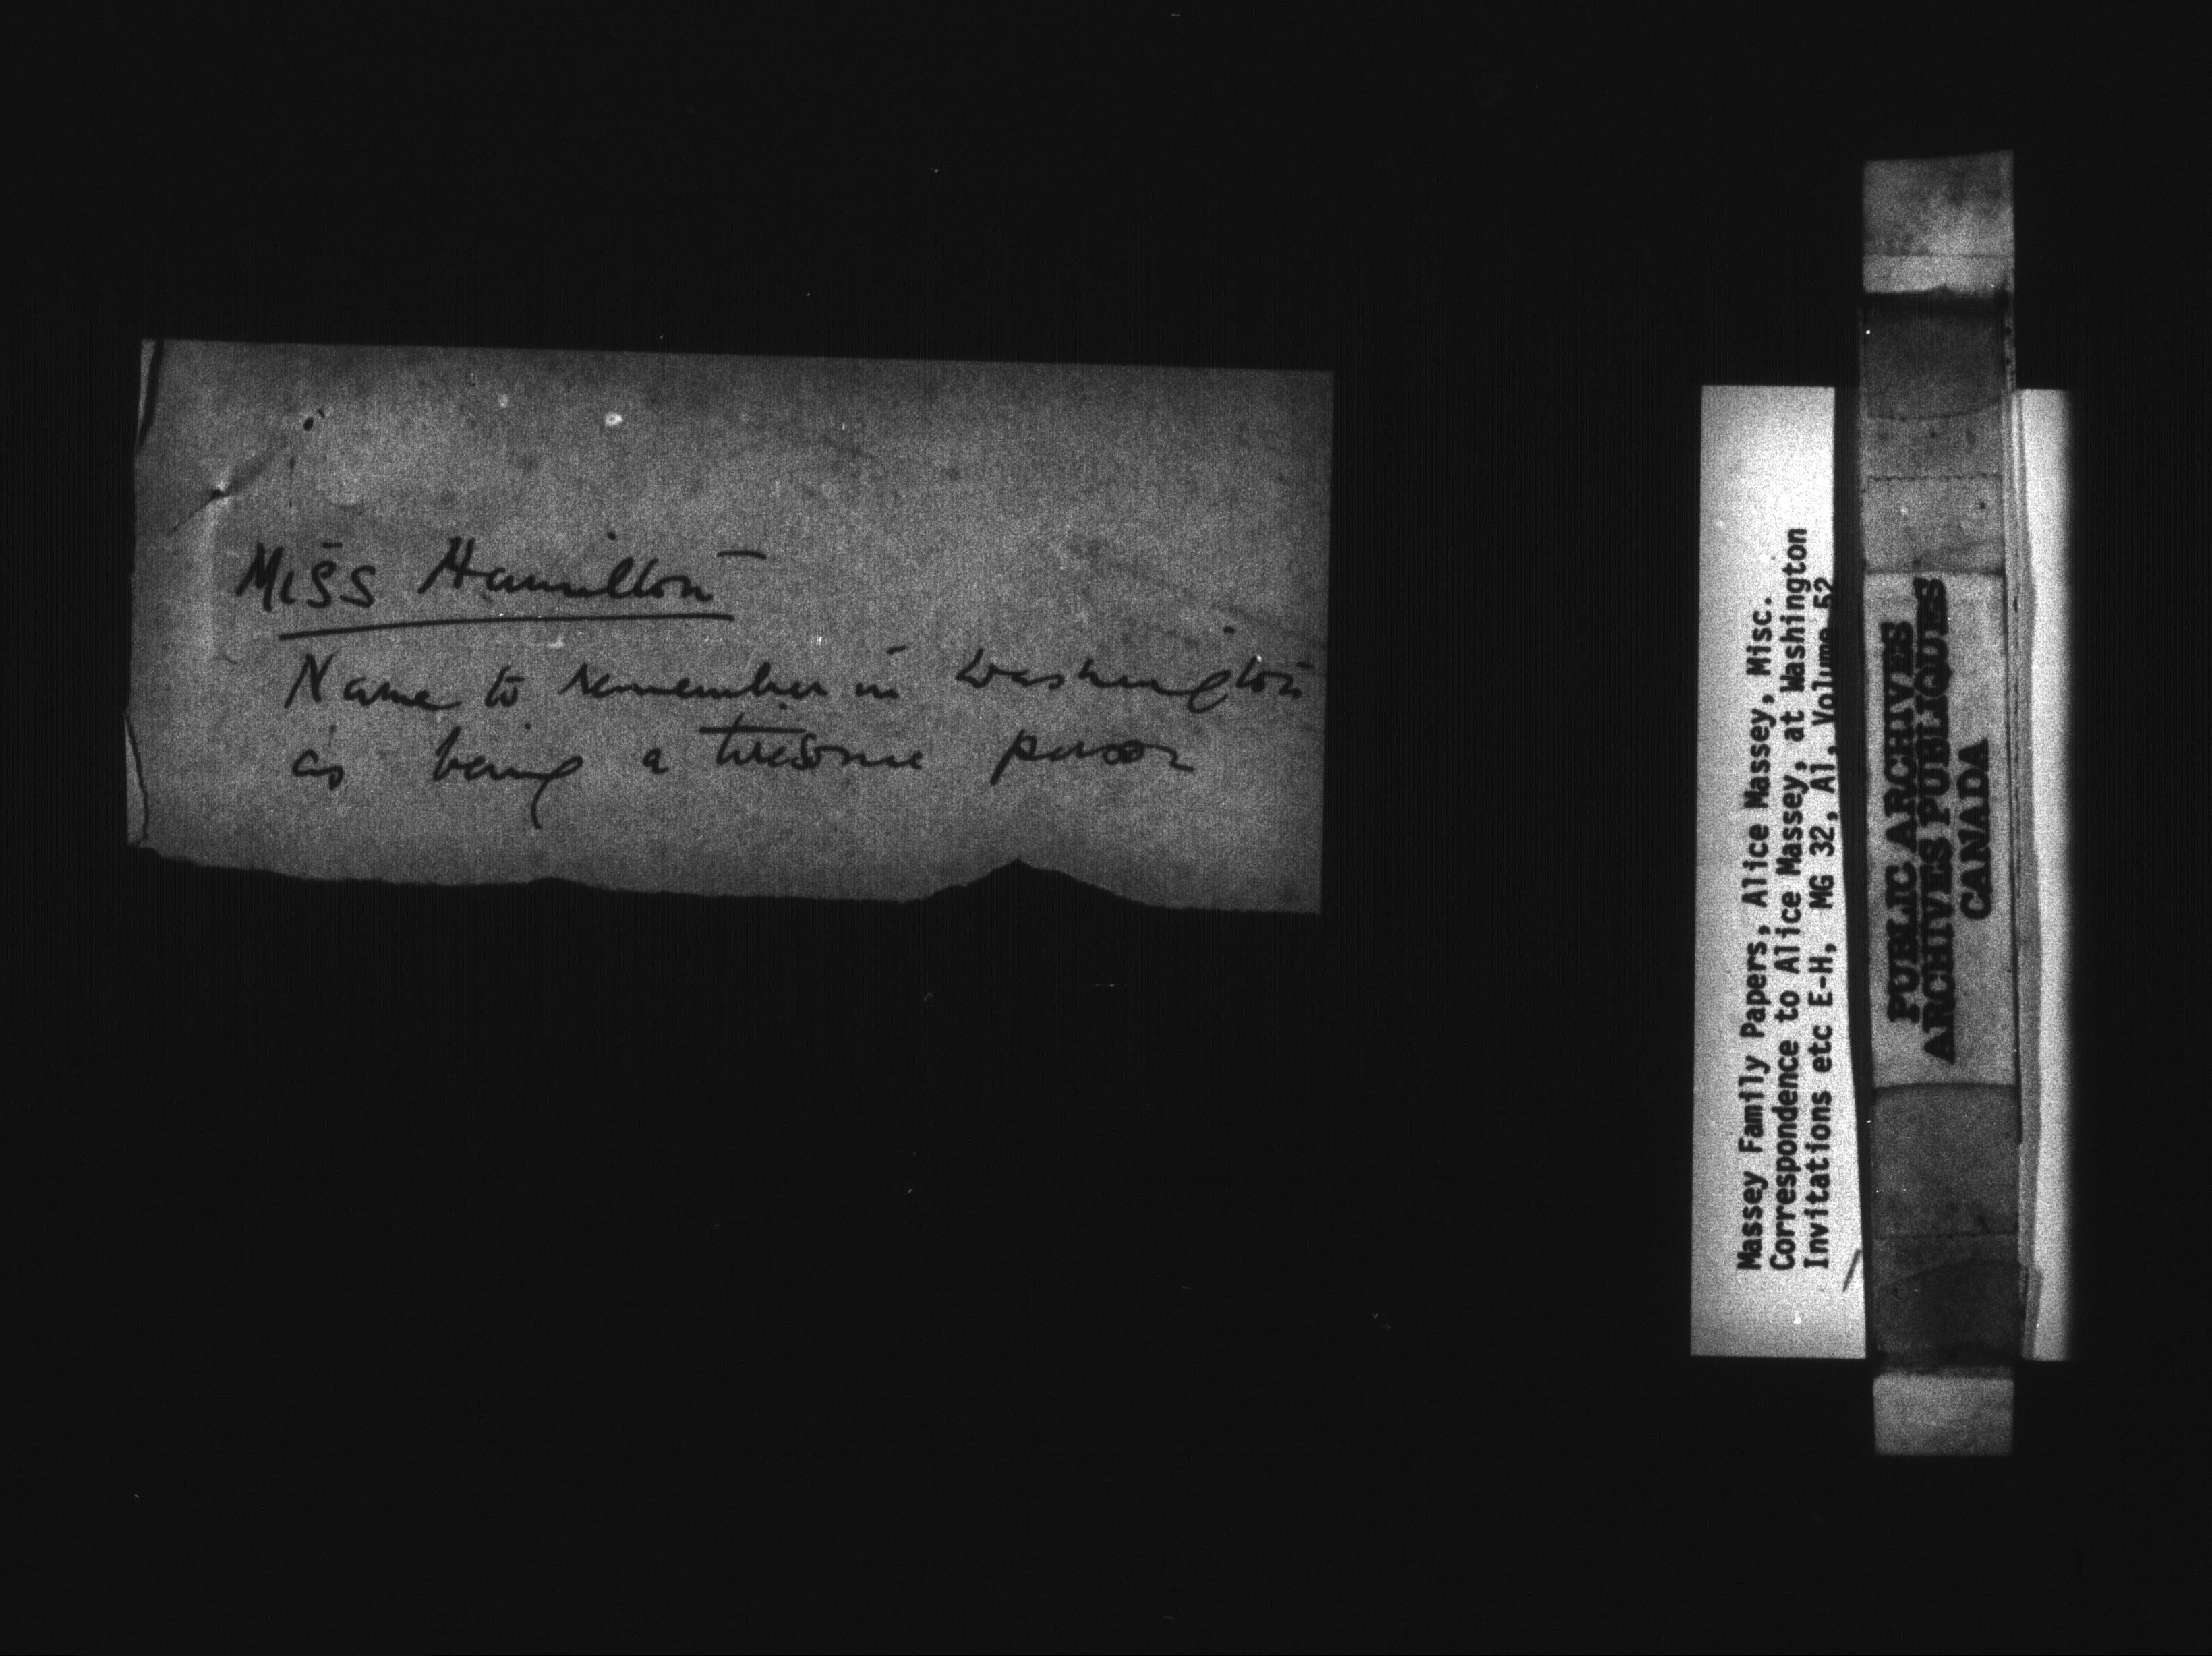 Miss Hamilton
Name to remember in Washington
as being a tiresome person
Massey Family Papers, Alice Massey, Misc.
Correspondence to Alice Massey, at Washington
Invitations etc E-H, MG 32, A1, Volume 52
PUBLIC ARCHIVES
ARCHIVES PUBLIQUES
CANADA